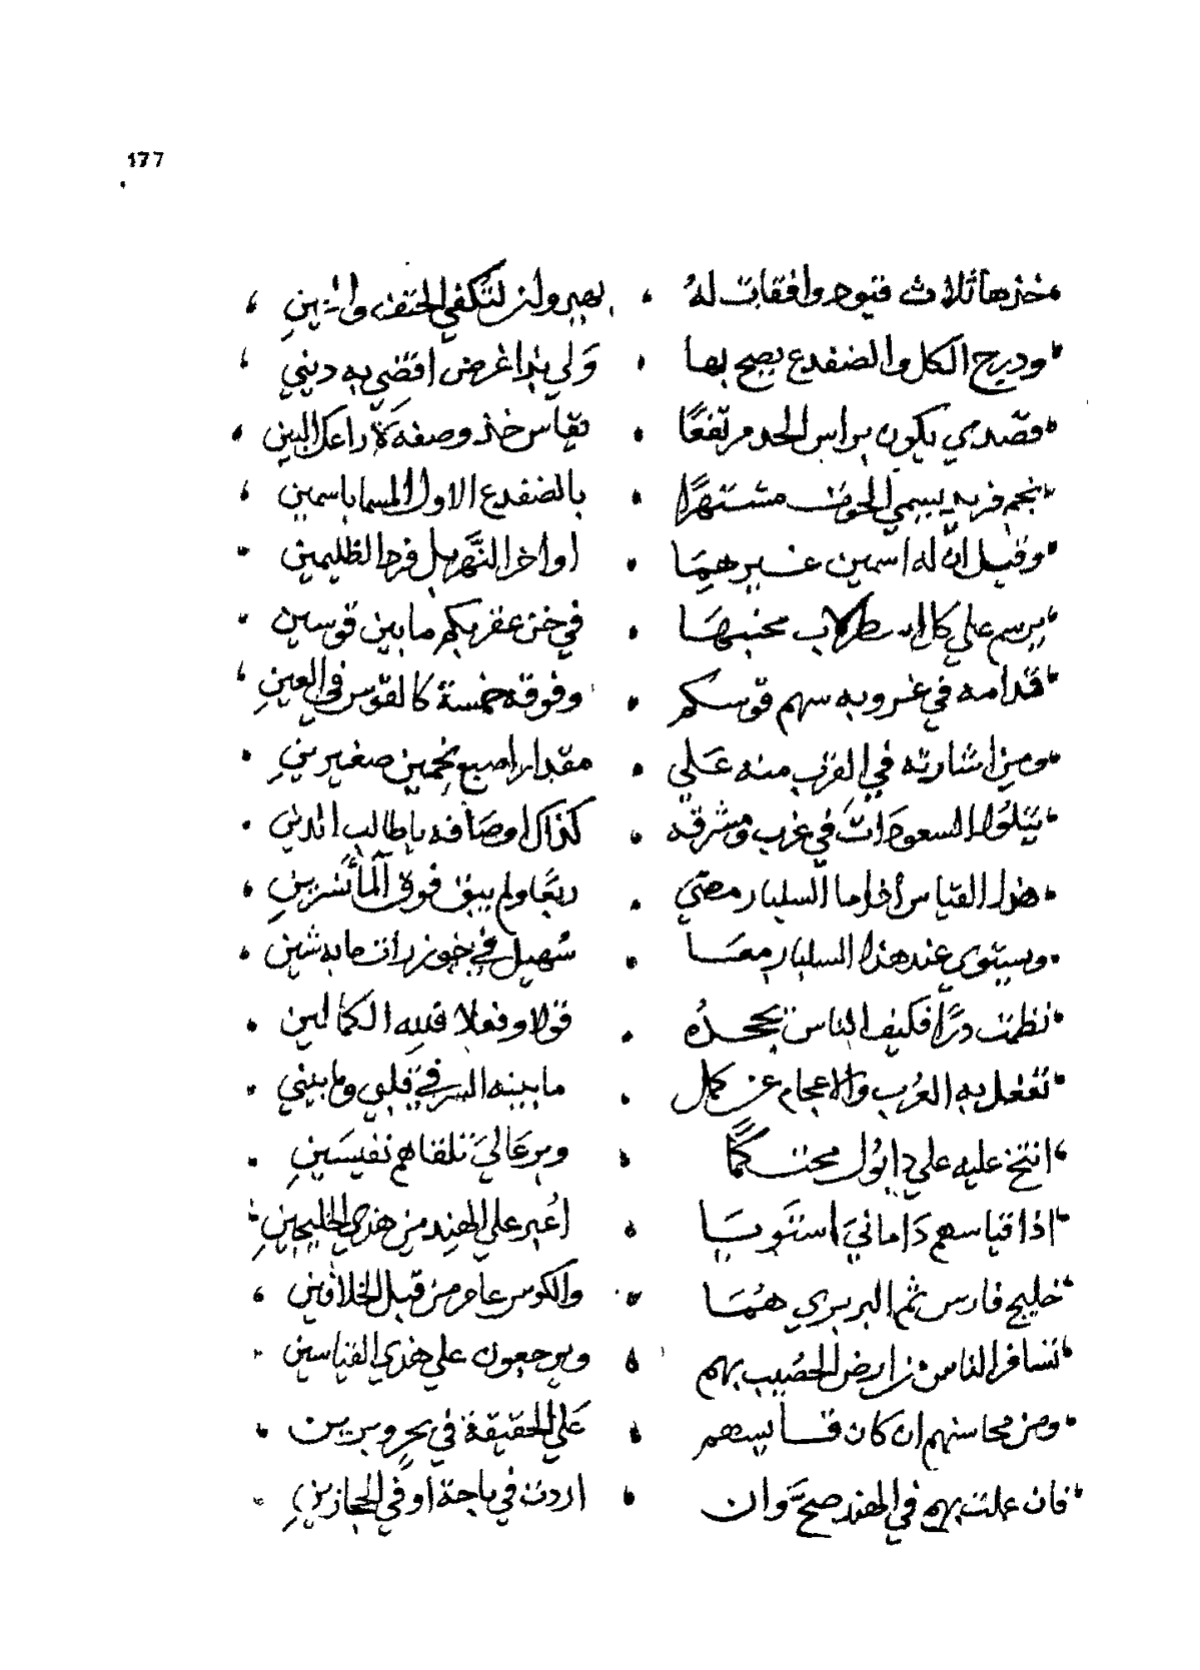 177
خذها ثلاث فتوح وافقات له
ودرج الكل والضفدع يصح بها ولي بذا غرض اقضي به ديني
قصدي يكون براس الحد مرتفعًا تقاس خذ وصفه
بنجم فرد يسمي الحوت مشتهرًا بالضفدع الاول المسما باسمين
وقيل ان له اسمين غيرهما اواخر النهر بل فرد الظليمين
يرسم علي كل اسطرلاب محتبها في حز عقربكم ما بين قوسين
قدامه في غروبه سهم قوسكم وفوقه خمسة كالقوس في العين
ومن اشارته في القرب منه علي مقدار اصبع نجمين صغيرين
يتلوا السعودات في غرب ومشرقه كذاك اوصافه يا طالب
هذا القياس اذا ما السلبار مضي ربعًا ولم يبق فوق الما
ويستوي عند هذا السلبار معا سهيل في
نظمت درًا فكيف الناس تجحده قولا وفعلا فتيه الكمالين
تفعل به العرب والاعجام عن كمل ما بينه السر في قلبي وما بيني
انتخ عليه علي دابول محتكمًا وبر عالي تلقاهم نفيسين
اذا قياسهم داماني استويا اعبر علي الهند من هذي الخليجين
خليج فارس ثم البربري هما والكوس عام من قبل الخلافين
تسافر الناس من ارض الحصيب بهم ويرجعون علي هذي القياسين
ومن محاسنهم ان كان قايسهم علي الحقيقة في بحر وبرين
فان علت بهم في الهند صح وان اردت في باحة او في الحجازين